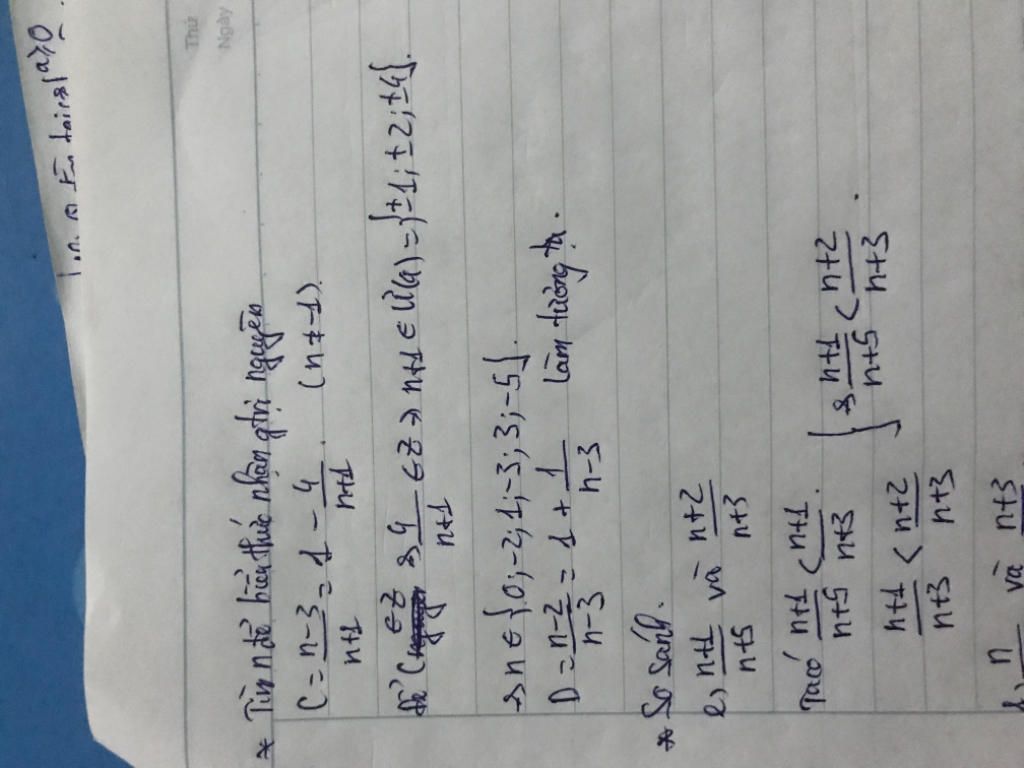 Thứ
Ngày
* Tìm n để biểu thức nhận gtrị nguyên
C = n-3/n+1 = 1 - 4/n+1 . (n ≠ -1).
để C ∈ Z => 4/n+1 ∈ Z => n+1 ∈ Ư(4) = {±1; ±2; ±4}.
=> n ∈ {0; -2; 1; -3; 3; -5}.
D = n-2/n-3 = 1 + 1/n-3 làm tương tự.
* So sánh.
e) n+1/n+5 và n+2/n+3
Ta có n+1/n+5 < n+1/n+3 .
n+1/n+3 < n+2/n+3 } => n+1/n+5 < n+2/n+3 .
n và n+3